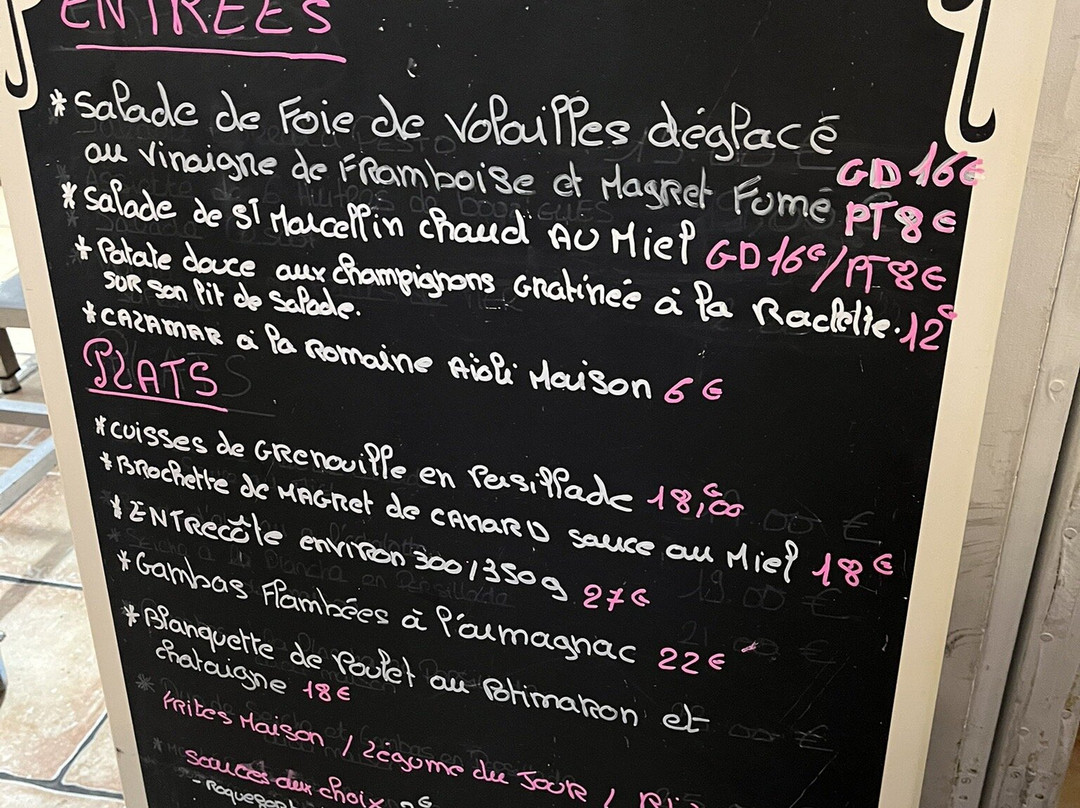 ENTRÉES
* Salade de Foie de Volailles déglacé
au Vinaigne de Framboise et Magret Fumé GD 16€
PT 8€
* Salade de ST Marcellin chaud AU Miel GD 16€/PT 8€
* Patate douce aux champignons Gratinée à la Raclette. 12€
SUR son lit de Salade.
* CALAMAR à la Romaine Aïoli Maison 6€
PLATS
* cuisses de GRENOUILLE en Persillade 18,€00
* BROCHETTE de MAGRET de CANARD sauce au Miel 18€
* ENTRECÔTE environ 300/350g 27€
* Gambas Flambées à l'aumagnac 22€
* Blanquette de Poulet au Potimaron et
chataigne 18€
*
Frites Maison / Légume du Jour /
sauces aux choix
- Roquefort